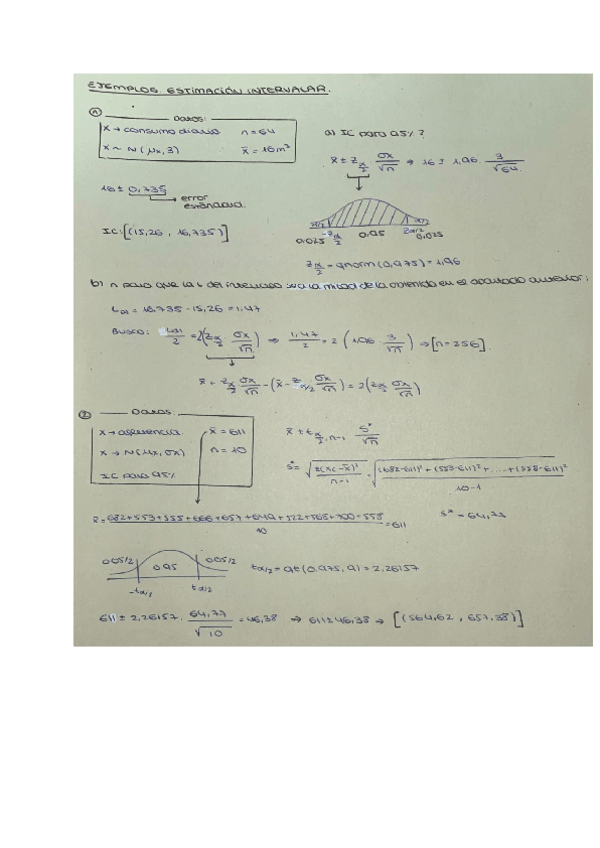 EJEMPLOS ESTIMACIÓN INTERVALAR.
① Datos:
x → consumo diario n = 64
x ~ N(μx, 3) x̄ = 16 m³
a) IC para 95%?
x̄ ± z α/2 σx/√n → 16 ± 1,96 · 3/√64
16 ± 0,735
error estándar
IC: [(15,26 , 16,735)]
-z α/2 z α/2
0,025 0,95 0,025
z α/2 = qnorm(0,975) = 1,96
b) n para que la L del intervalo sea la mitad de la obtenida en el apartado anterior:
= 16,735 - 15,26 = 1,47
Busco: /2 = 2(z α/2 σx/√n) ⇒ 1,47/2 = 2 (1,96 · 3/√n) → [n = 256]
x̄ + z α/2 · σx/√n - (x̄ - z α/2 σx/√n) = 2(z α/2 σx/√n)
② Datos:
x → asistencia x̄ = 611
x → N(μx, σx) n = 10
IC para 95%
x̄ ± t α/2, n-1 S*/√n
S* = √(Σ(xi - x̄)²/n-1) = √((682-611)² + (553-611)² + .... + (558-611)²/10-1)
x̄ = 682+553+555+666+657+649+522+568+700+558/10 = 611
S* = 64,77
0,05/2 0,95 0,05/2
-t α/2 t α/2
t α/2 = qt(0,975, 9) = 2,26157
611 ± 2,26157 · 64,77/√10 = 46,38 → 611 ± 46,38 → [(564,62 , 657,38)]